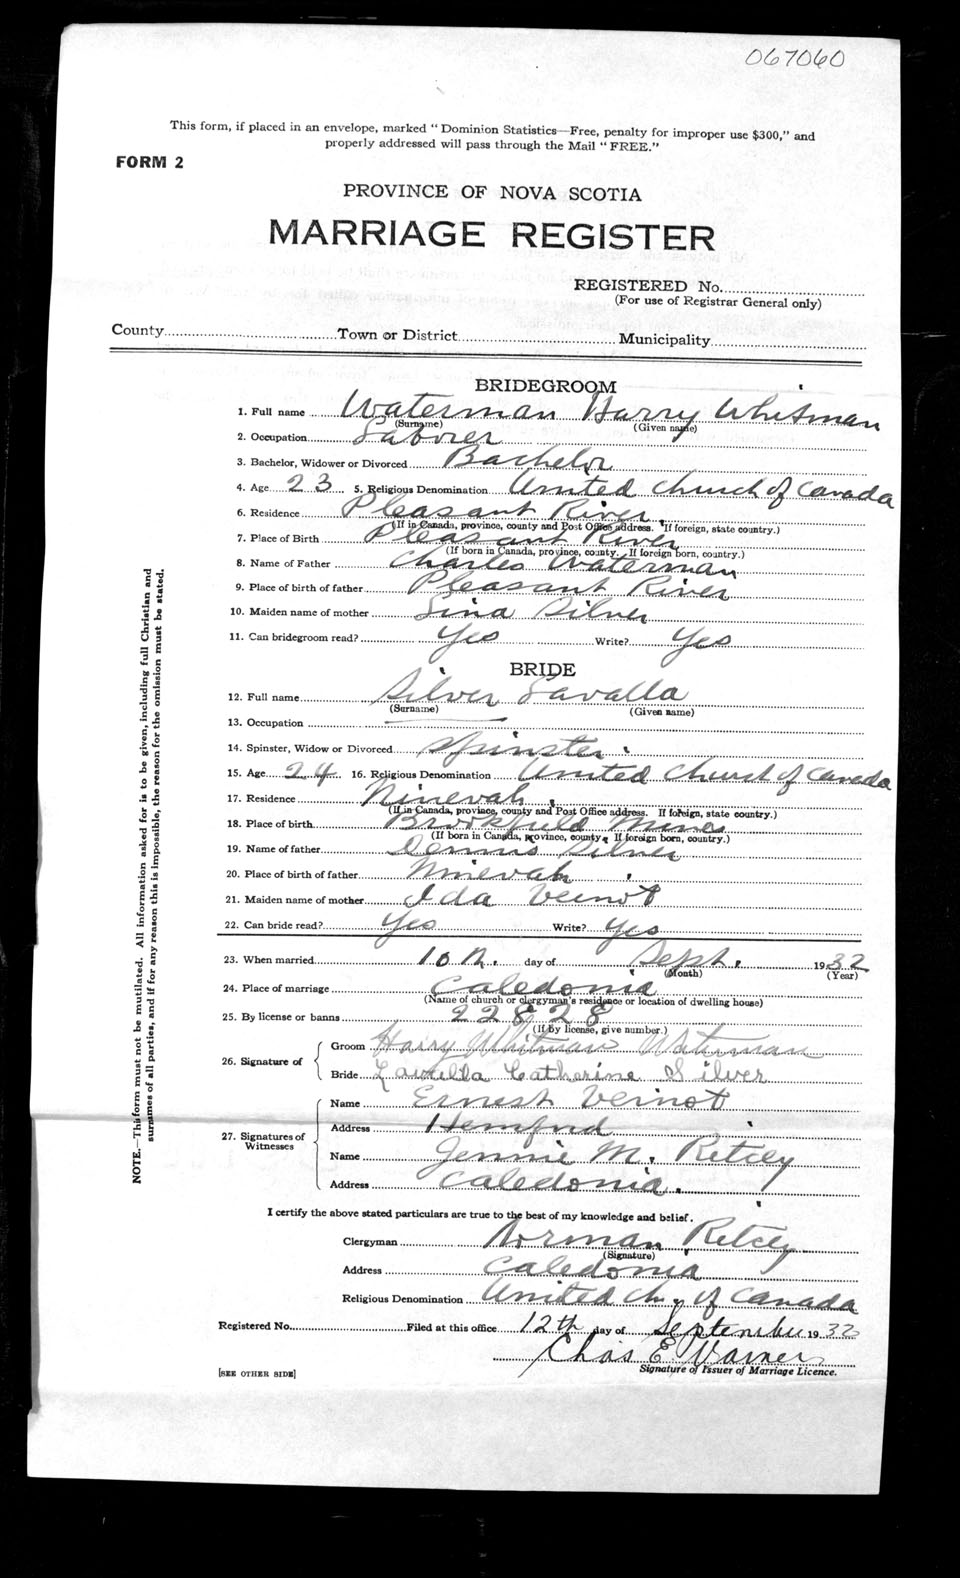 067060
This form, if placed in an envelope, marked "Dominion Statistics—Free, penalty for improper use $300," and
properly addressed will pass through the Mail "FREE."
FORM 2
PROVINCE OF NOVA SCOTIA
MARRIAGE REGISTER
REGISTERED No.
(For use of Registrar General only)
County Town or District Municipality
BRIDEGROOM
1. Full name Waterman Harry Whitman
(Surname) (Given name)
2. Occupation Laborer
3. Bachelor, Widower or Divorced Bachelor
4. Age 23 5. Religious Denomination United Church of Canada
6. Residence Pleasant River
(If in Canada, province, county and Post Office address. If foreign, state country.)
7. Place of Birth Pleasant River
(If born in Canada, province, county. If foreign born, country.)
8. Name of Father Charles Waterman
9. Place of birth of father Pleasant River
10. Maiden name of mother Lina Silver
11. Can bridegroom read? Yes Write? Yes
BRIDE
12. Full name Silver Lavalla
(Surname) (Given name)
13. Occupation
14. Spinster, Widow or Divorced Spinster
15. Age 24 16. Religious Denomination United Church of Canada
17. Residence Ninevah
(If in Canada, province, county and Post Office address. If foreign, state country.)
18. Place of birth Brookfield Mines
(If born in Canada, province, county. If foreign born, country.)
19. Name of father Dennis Silver
20. Place of birth of father Ninevah
21. Maiden name of mother Ida Veinot
22. Can bride read? Yes Write? Yes
23. When married 10th. day of Sept. 1932
(Month) (Year)
24. Place of marriage Caledonia
(Name of church or clergyman's residence or location of dwelling house)
25. By license or banns 22828
(If by license, give number.)
26. Signature of Groom Harry Whitman Waterman
Bride Lavella Catherine Silver
27. Signatures of Witnesses Name Ernest Veinot
Address Hemford
Name Jennie M. Ritcey
Address Caledonia.
I certify the above stated particulars are true to the best of my knowledge and belief.
Clergyman Norman Ritcey
(Signature)
Address Caledonia
Religious Denomination United Ch. of Canada
Registered No. Filed at this office 12th day of September 1932
Chas E
Signature of Issuer of Marriage Licence.
[SEE OTHER SIDE]
NOTE.—This form must not be mutilated. All information asked for is to be given, including full Christian and
surnames of all parties, and if for any reason this is impossible, the reason for the omission must be stated.